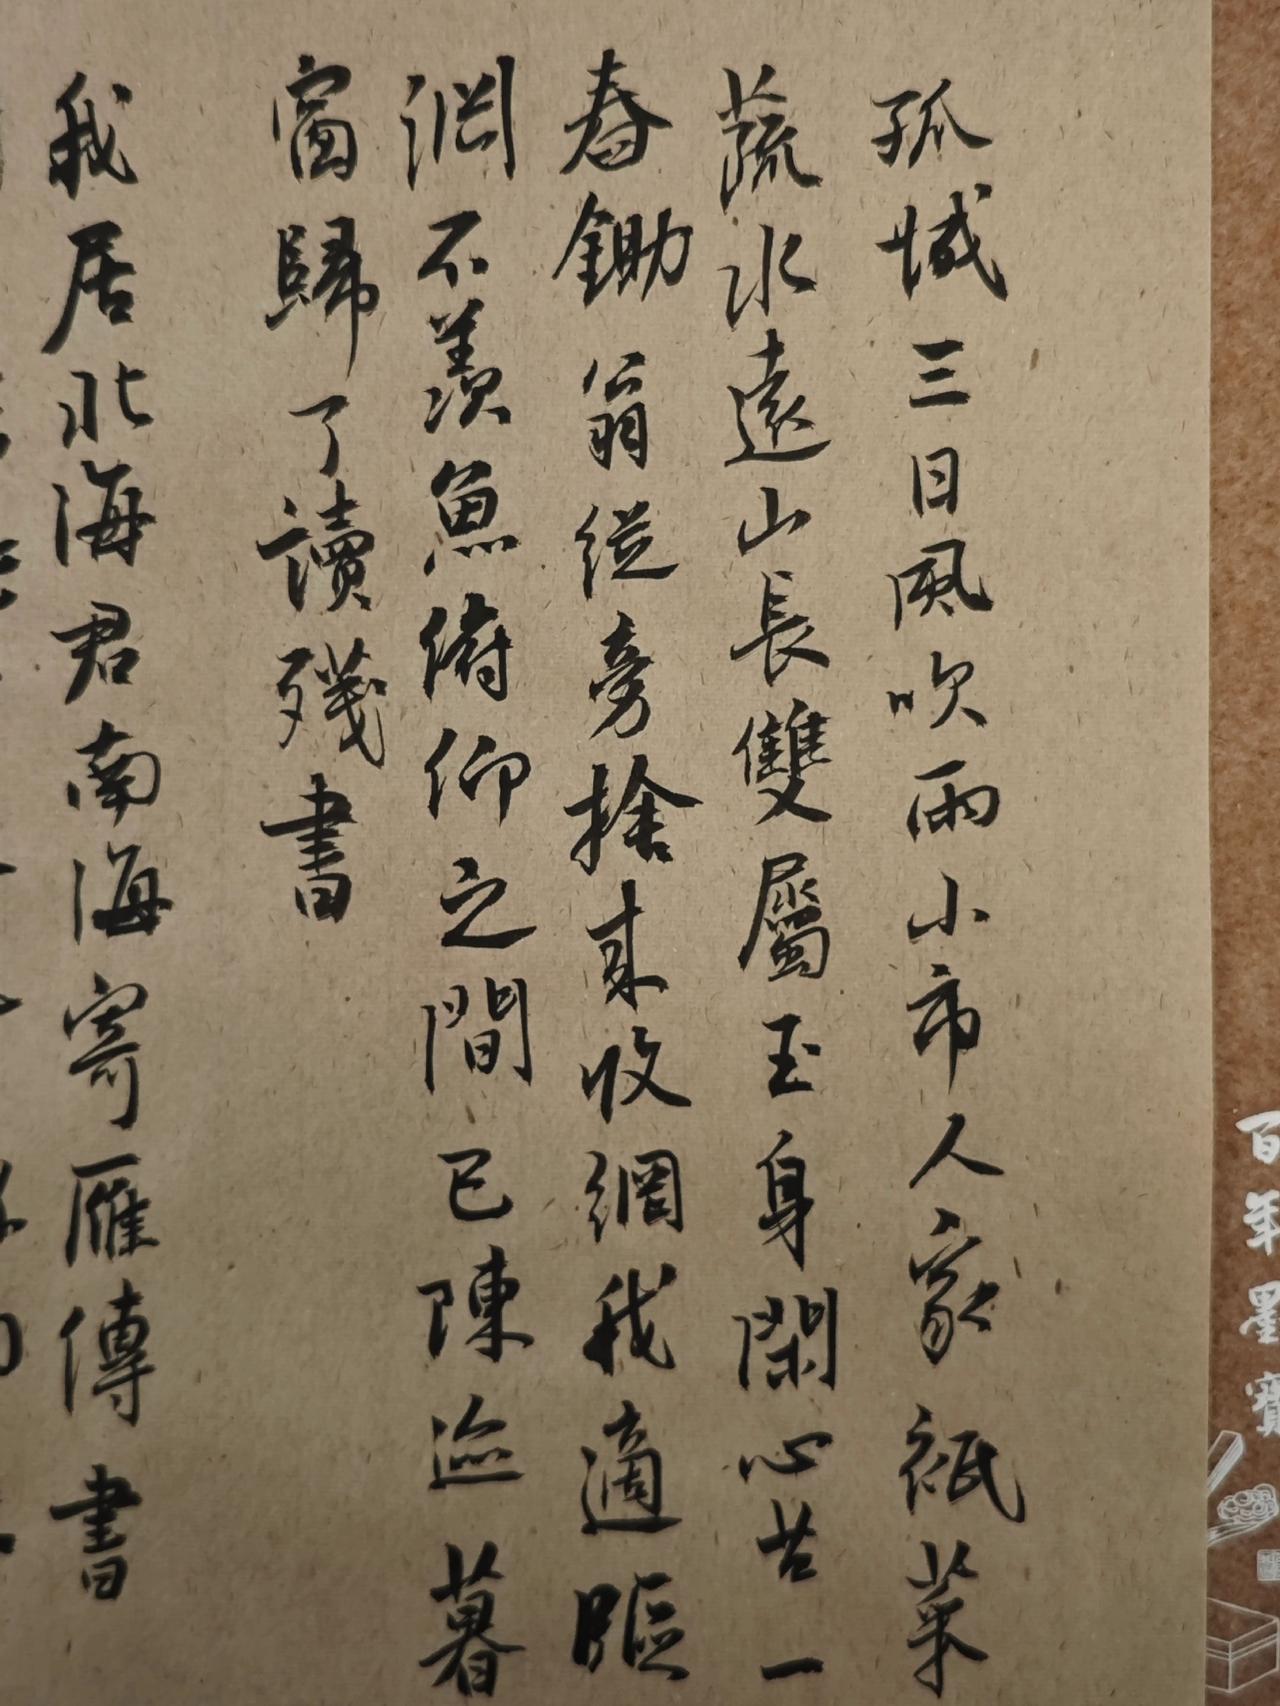 百年墨寶
孤城三日風吹雨小市人家祇菜
蔬水遠山長雙屬玉身閑心苦一
舂鋤翁從旁捨來收網我適臨
淵不羨魚俯仰之間已陳迹暮
窗歸了讀殘書
我居北海君南海寄雁傳書